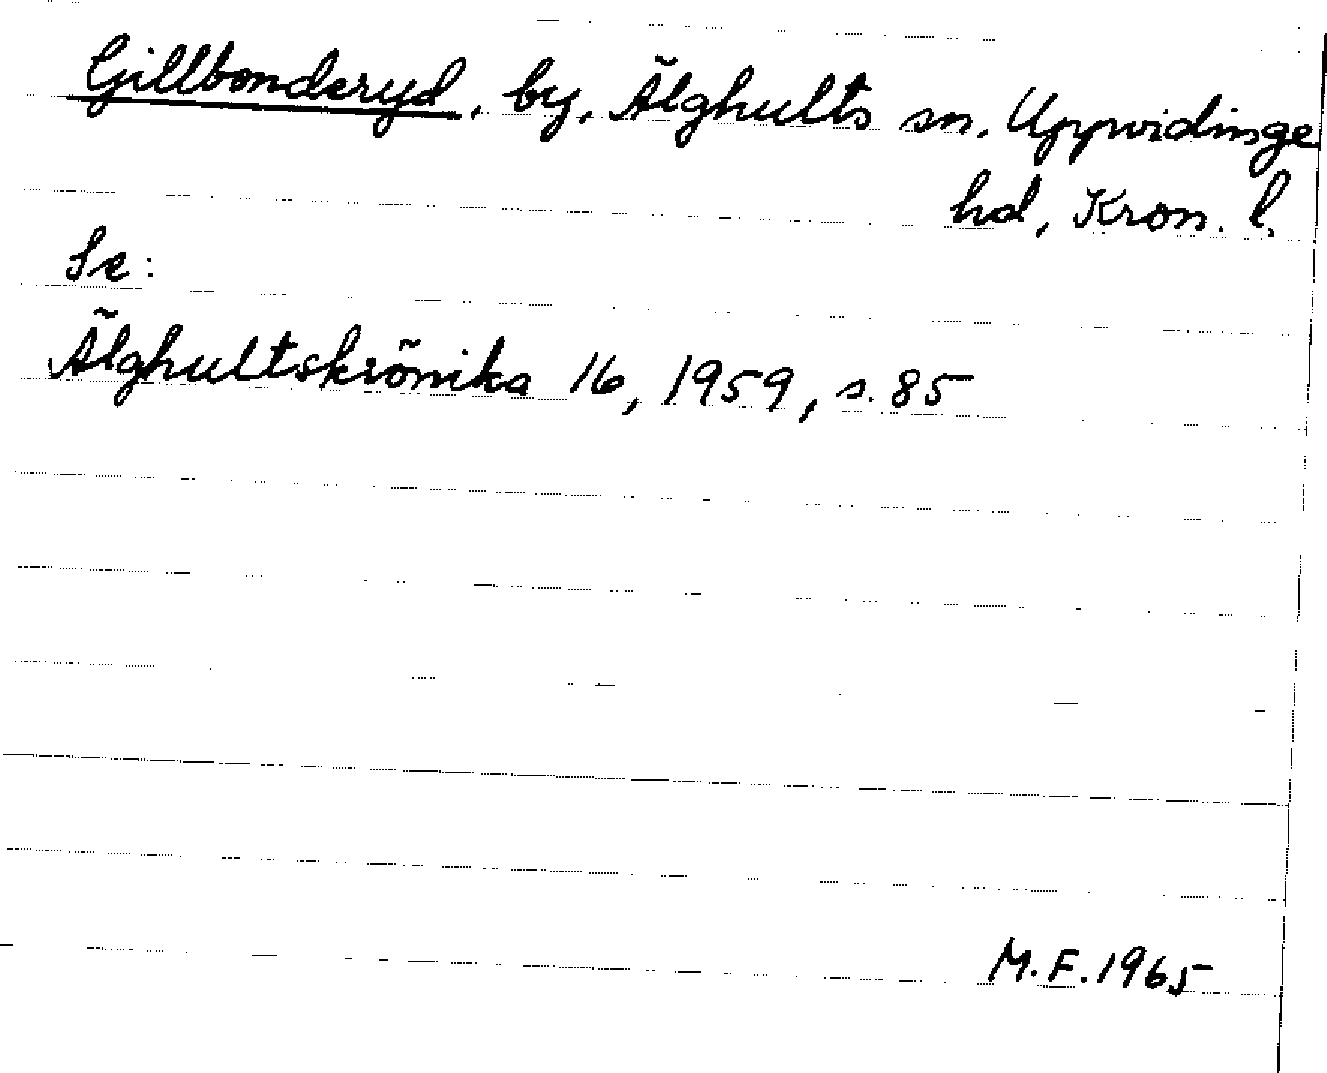 Gillbonderyd, by, Älghults sn, Uppvidinge
hd, Kron. l.
Se:
Älghultskrönika 16, 1959, s. 85
M.F. 1965